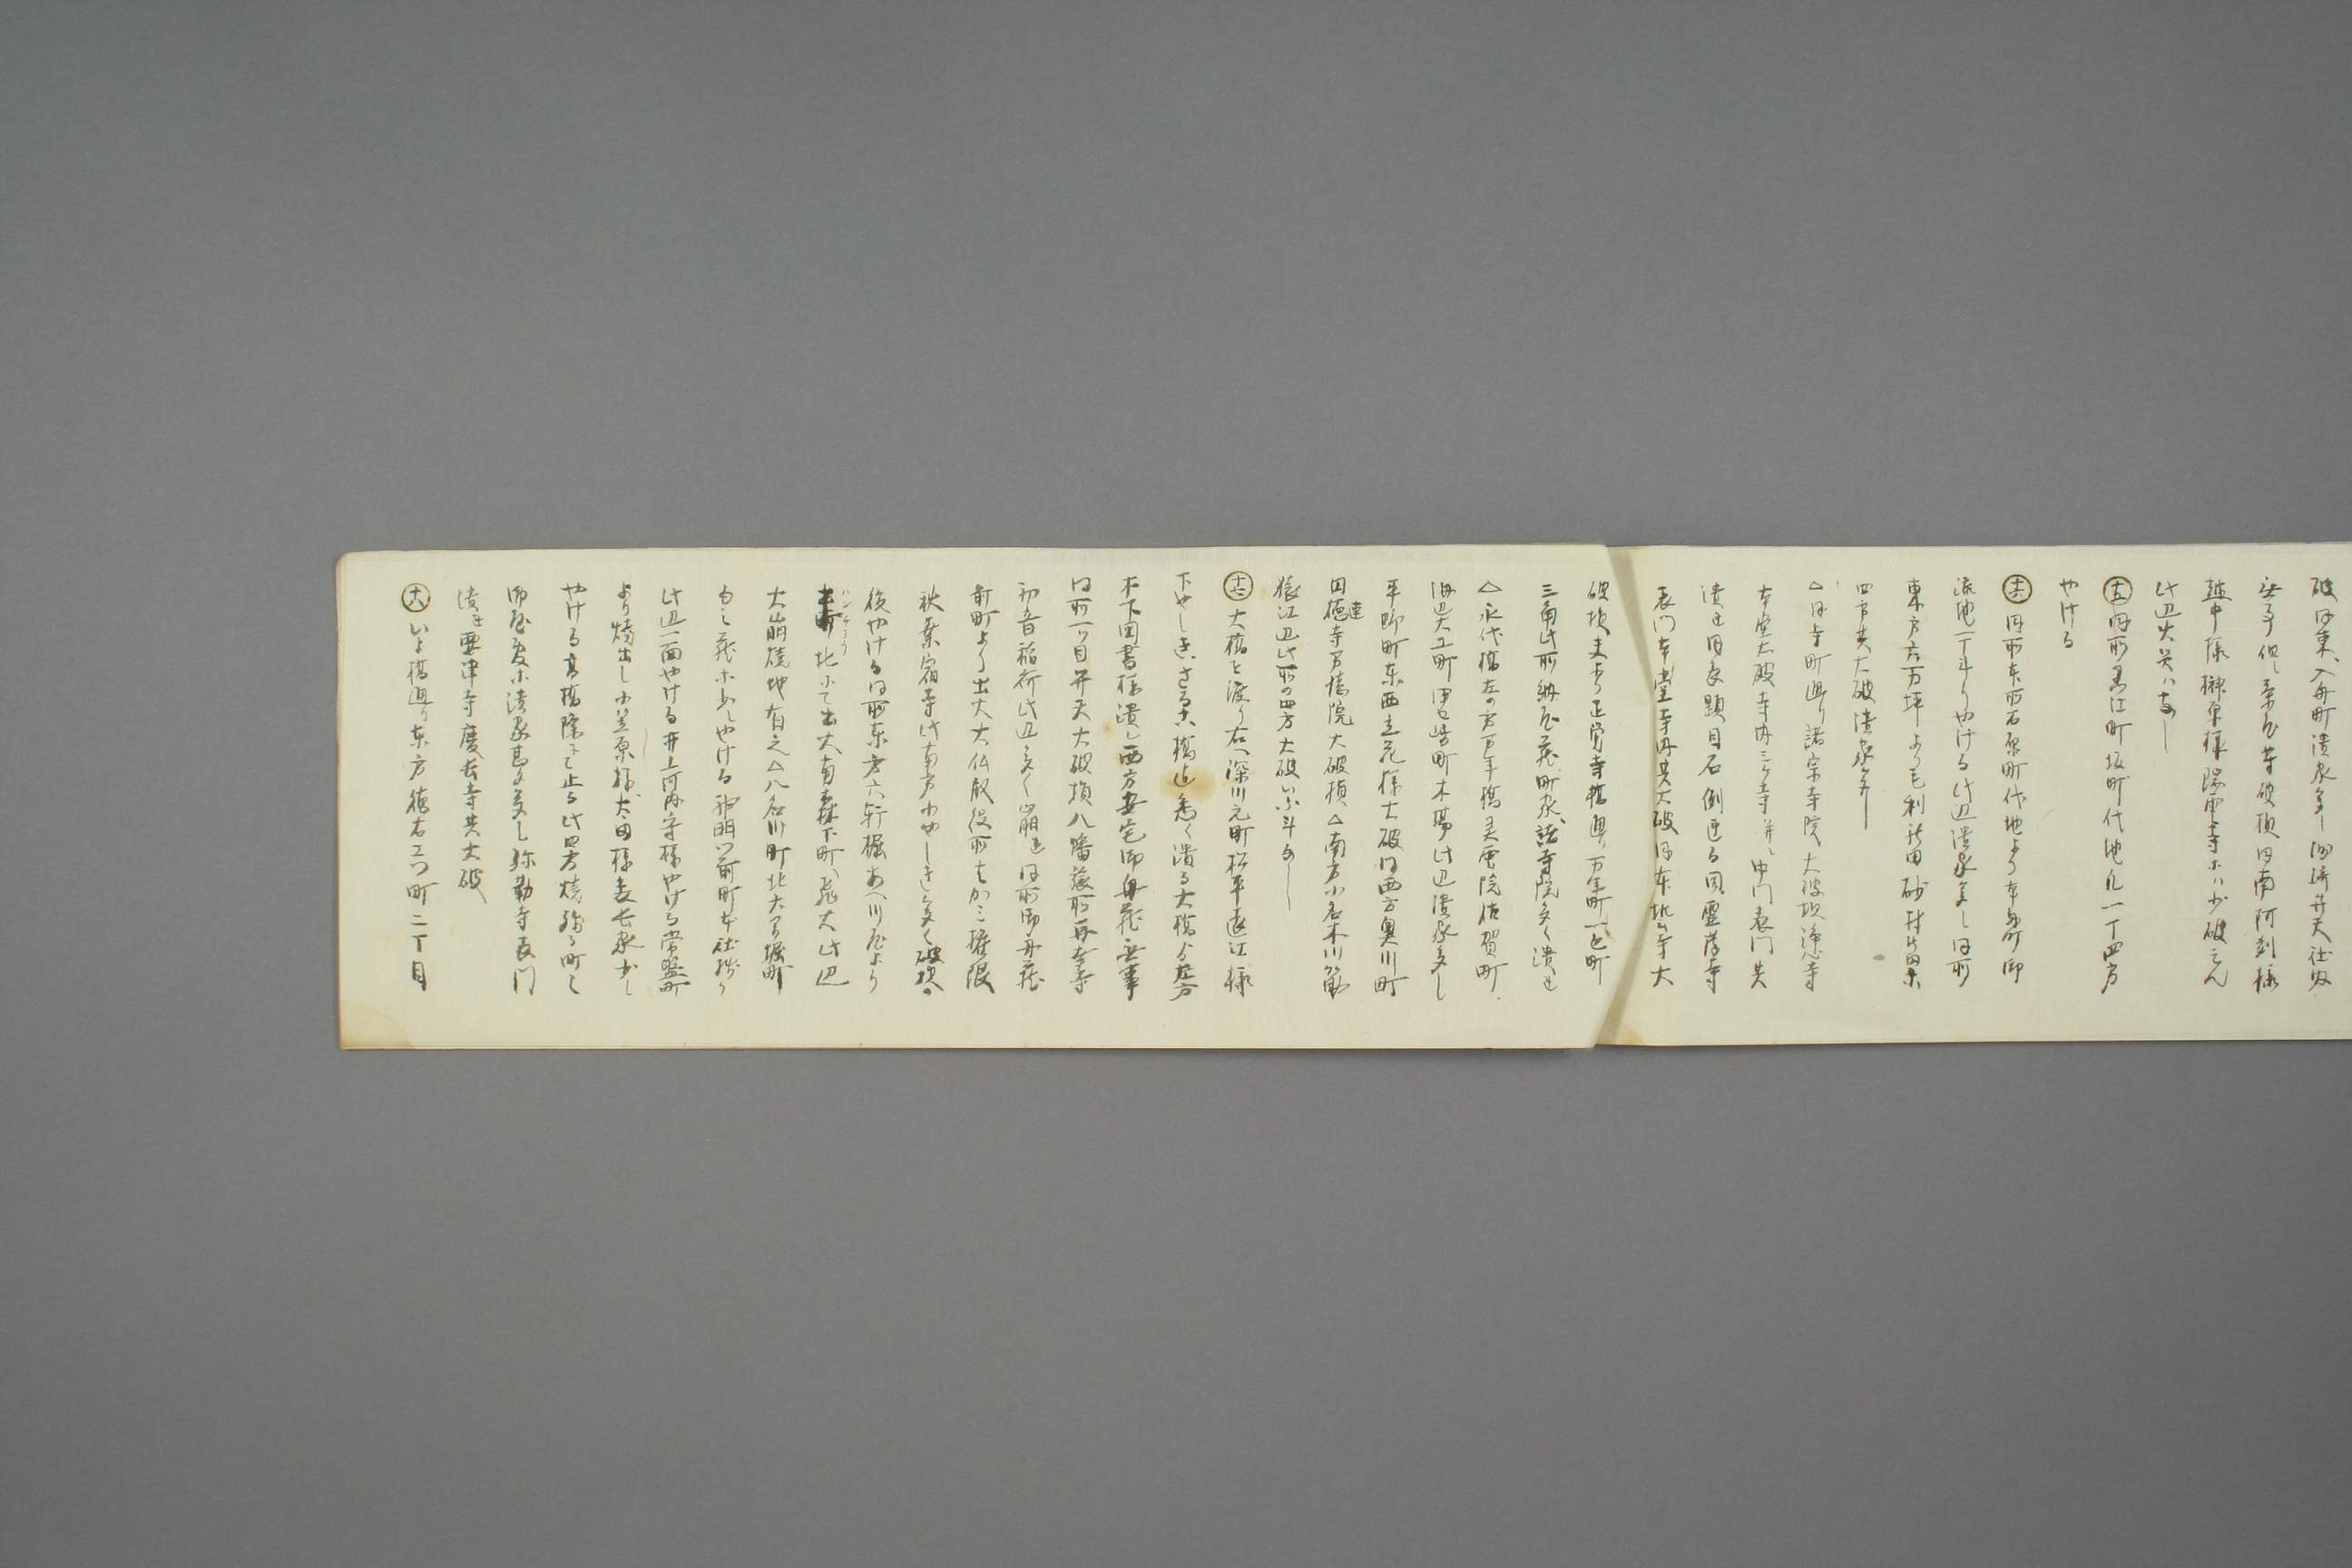 破同東入舟町潰家多し洲崎弁天社内
無事但し茶屋等破損同南阿刻様
越中様榊原様陽雲寺ホハ少破そん
此辺火災ハなし
十五 同所黒江町坂町代地凡一丁四方
やける
十六 同所東西石原町代地より本舟町御
流地一丁斗りやける此辺潰家多し同所
東方六万坪より毛利新田砂村新田ホ
四方共大破潰家多し
△同寺町通り諸宗寺院大破損浄心寺
本堂大破寺内三ヶ寺并ニ中門表門共
潰れ同表題目石倒まる同霊岸寺
表門本堂寺内共大破同東地寺大
破損夫より正覚寺橋通り万年町一色町
三角此所納屋蔵町家諸寺院多く潰れ
△永代橋左の方万年橋灵雲院佐賀町
海辺大工町伊セ崎町木場此辺潰家多し
平野町東西立花様大破同西方奥川町
田徳寺万徳院大破損△南方小名木川筋
猿江辺此所の四方大破いふ斗なし
十七 大橋を渡り右ヘ深川元町松平遠江様
下やしきさるこ橋迄悉く潰る大橋より左方
木下図書様潰レ西方安宅御舟蔵無事
同所一ツ目弁天大破損八幡旅所再建寺
初音稲荷此辺多く崩れ同所御舟蔵
前町より出火大仏殿役所もかミ据限
秋葉宿寺此南方小やしき多く破損の
後やける同所東方六軒堀あへ川屋より
北ホて出火南森下町ヘ飛火此辺
大崩焼地有之△八名川町北六間堀町
ももミ蔵ホ少しやける神明門前町本社残り
此辺一面やける井上河内守様やける常盤町
より焼出し小笠原様太田様表長家少し
やける高橋際ニて止る此四方焼残る町々
御屋敷ホ潰家甚多し弥勒寺表門
潰れ要津寺慶長寺共大破
十八 いよ橋通り東方徳右エ門町二丁目